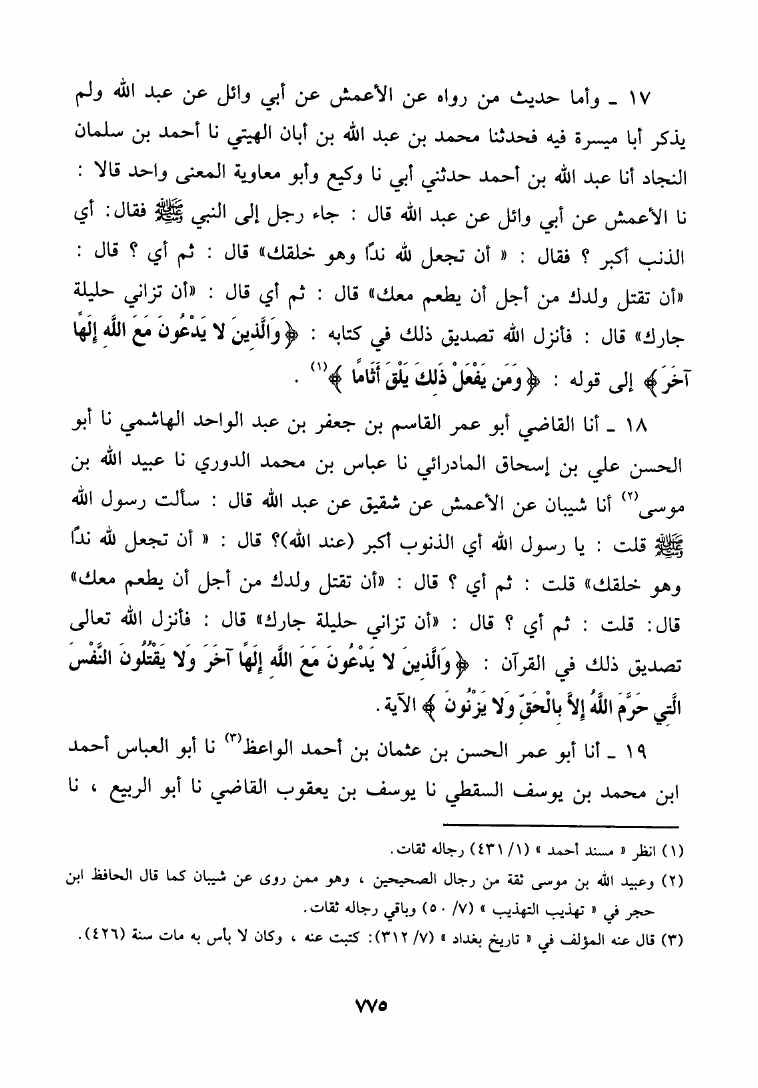 ١٧ ـ وأما حديث من رواه عن الأعمش عن أبي وائل عن عبد الله ولم
يذكر أبا ميسرة فيه فحدثنا محمد بن عبد الله بن أبان الهيتي نا أحمد بن سلمان
النجاد أنا عبد الله بن أحمد حدثني أبي نا وكيع وأبو معاوية المعنى واحد قالا :
نا الأعمش عن أبي وائل عن عبد الله قال : جاء رجل إلى النبي ﷺ فقال: أي
الذنب أكبر ؟ فقال : « أن تجعل لله ندًا وهو خلقك» قال : ثم أي ؟ قال :
«أن تقتل ولدك من أجل أن يطعم معك» قال : ثم أي قال : «أن تزاني حليلة
جارك» قال : فأنزل الله تصديق ذلك في كتابه : ﴿ وَالَّذِينَ لا يَدْعُونَ مَعَ اللَّهِ إِلَهًا
آخَرَ﴾ إلى قوله : ﴿ وَمَن يَفْعَلْ ذَلِكَ يَلْقَ أَثَامًا ﴾(١) .
١٨ ـ أنا القاضي أبو عمر القاسم بن جعفر بن عبد الواحد الهاشمي نا أبو
الحسن علي بن إسحاق المادرائي نا عباس بن محمد الدوري نا عبيد الله بن
موسى(٢) أنا شيبان عن الأعمش عن شقيق عن عبد الله قال : سألت رسول الله
ﷺ قلت : يا رسول الله أي الذنوب أكبر (عند الله)؟ قال : « أن تجعل لله ندًا
وهو خلقك» قلت : ثم أي ؟ قال : «أن تقتل ولدك من أجل أن يطعم معك»
قال: قلت : ثم أي ؟ قال : «أن تزاني حليلة جارك» قال : فأنزل الله تعالى
تصديق ذلك في القرآن : ﴿ وَالَّذِينَ لا يَدْعُونَ مَعَ اللَّهِ إِلَهًا آخَرَ وَلا يَقْتُلُونَ النَّفْسَ
الَّتِي حَرَّمَ اللَّهُ إِلاَّ بِالْحَقِّ وَلا يَزْنُونَ ﴾ الآية.
١٩ ـ أنا أبو عمر الحسن بن عثمان بن أحمد الواعظ(٣) نا أبو العباس أحمد
ابن محمد بن يوسف السقطي نا يوسف بن يعقوب القاضي نا أبو الربيع ، نا
(١) انظر « مسند أحمد » (١/ ٤٣١) رجاله ثقات.
(٢) وعبيد الله بن موسى ثقة من رجال الصحيحين ، وهو ممن روى عن شيبان كما قال الحافظ ابن
حجر في « تهذيب التهذيب » (٧/ ٥٠) وباقي رجاله ثقات.
(٣) قال عنه المؤلف في « تاريخ بغداد » (٧/ ٣١٢): كتبت عنه ، وكان لا بأس به مات سنة (٤٢٦).
٧٧٥